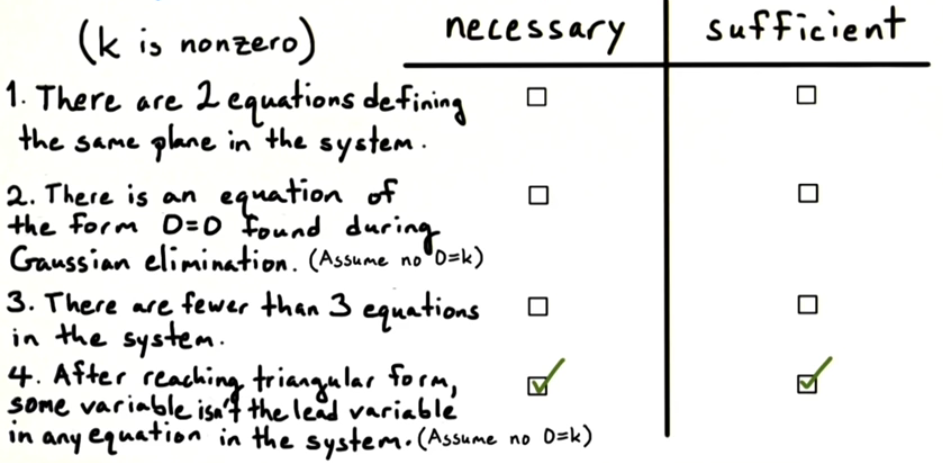 (k is nonzero)
necessary
sufficient
1. There are 2 equations defining
the same plane in the system.
2. There is an equation of
the form 0=0 found during
Gaussian elimination. (Assume no 0=k)
3. There are fewer than 3 equations
in the system.
4. After reaching triangular form,
some variable isn't the lead variable
in any equation in the system. (Assume no 0=k)